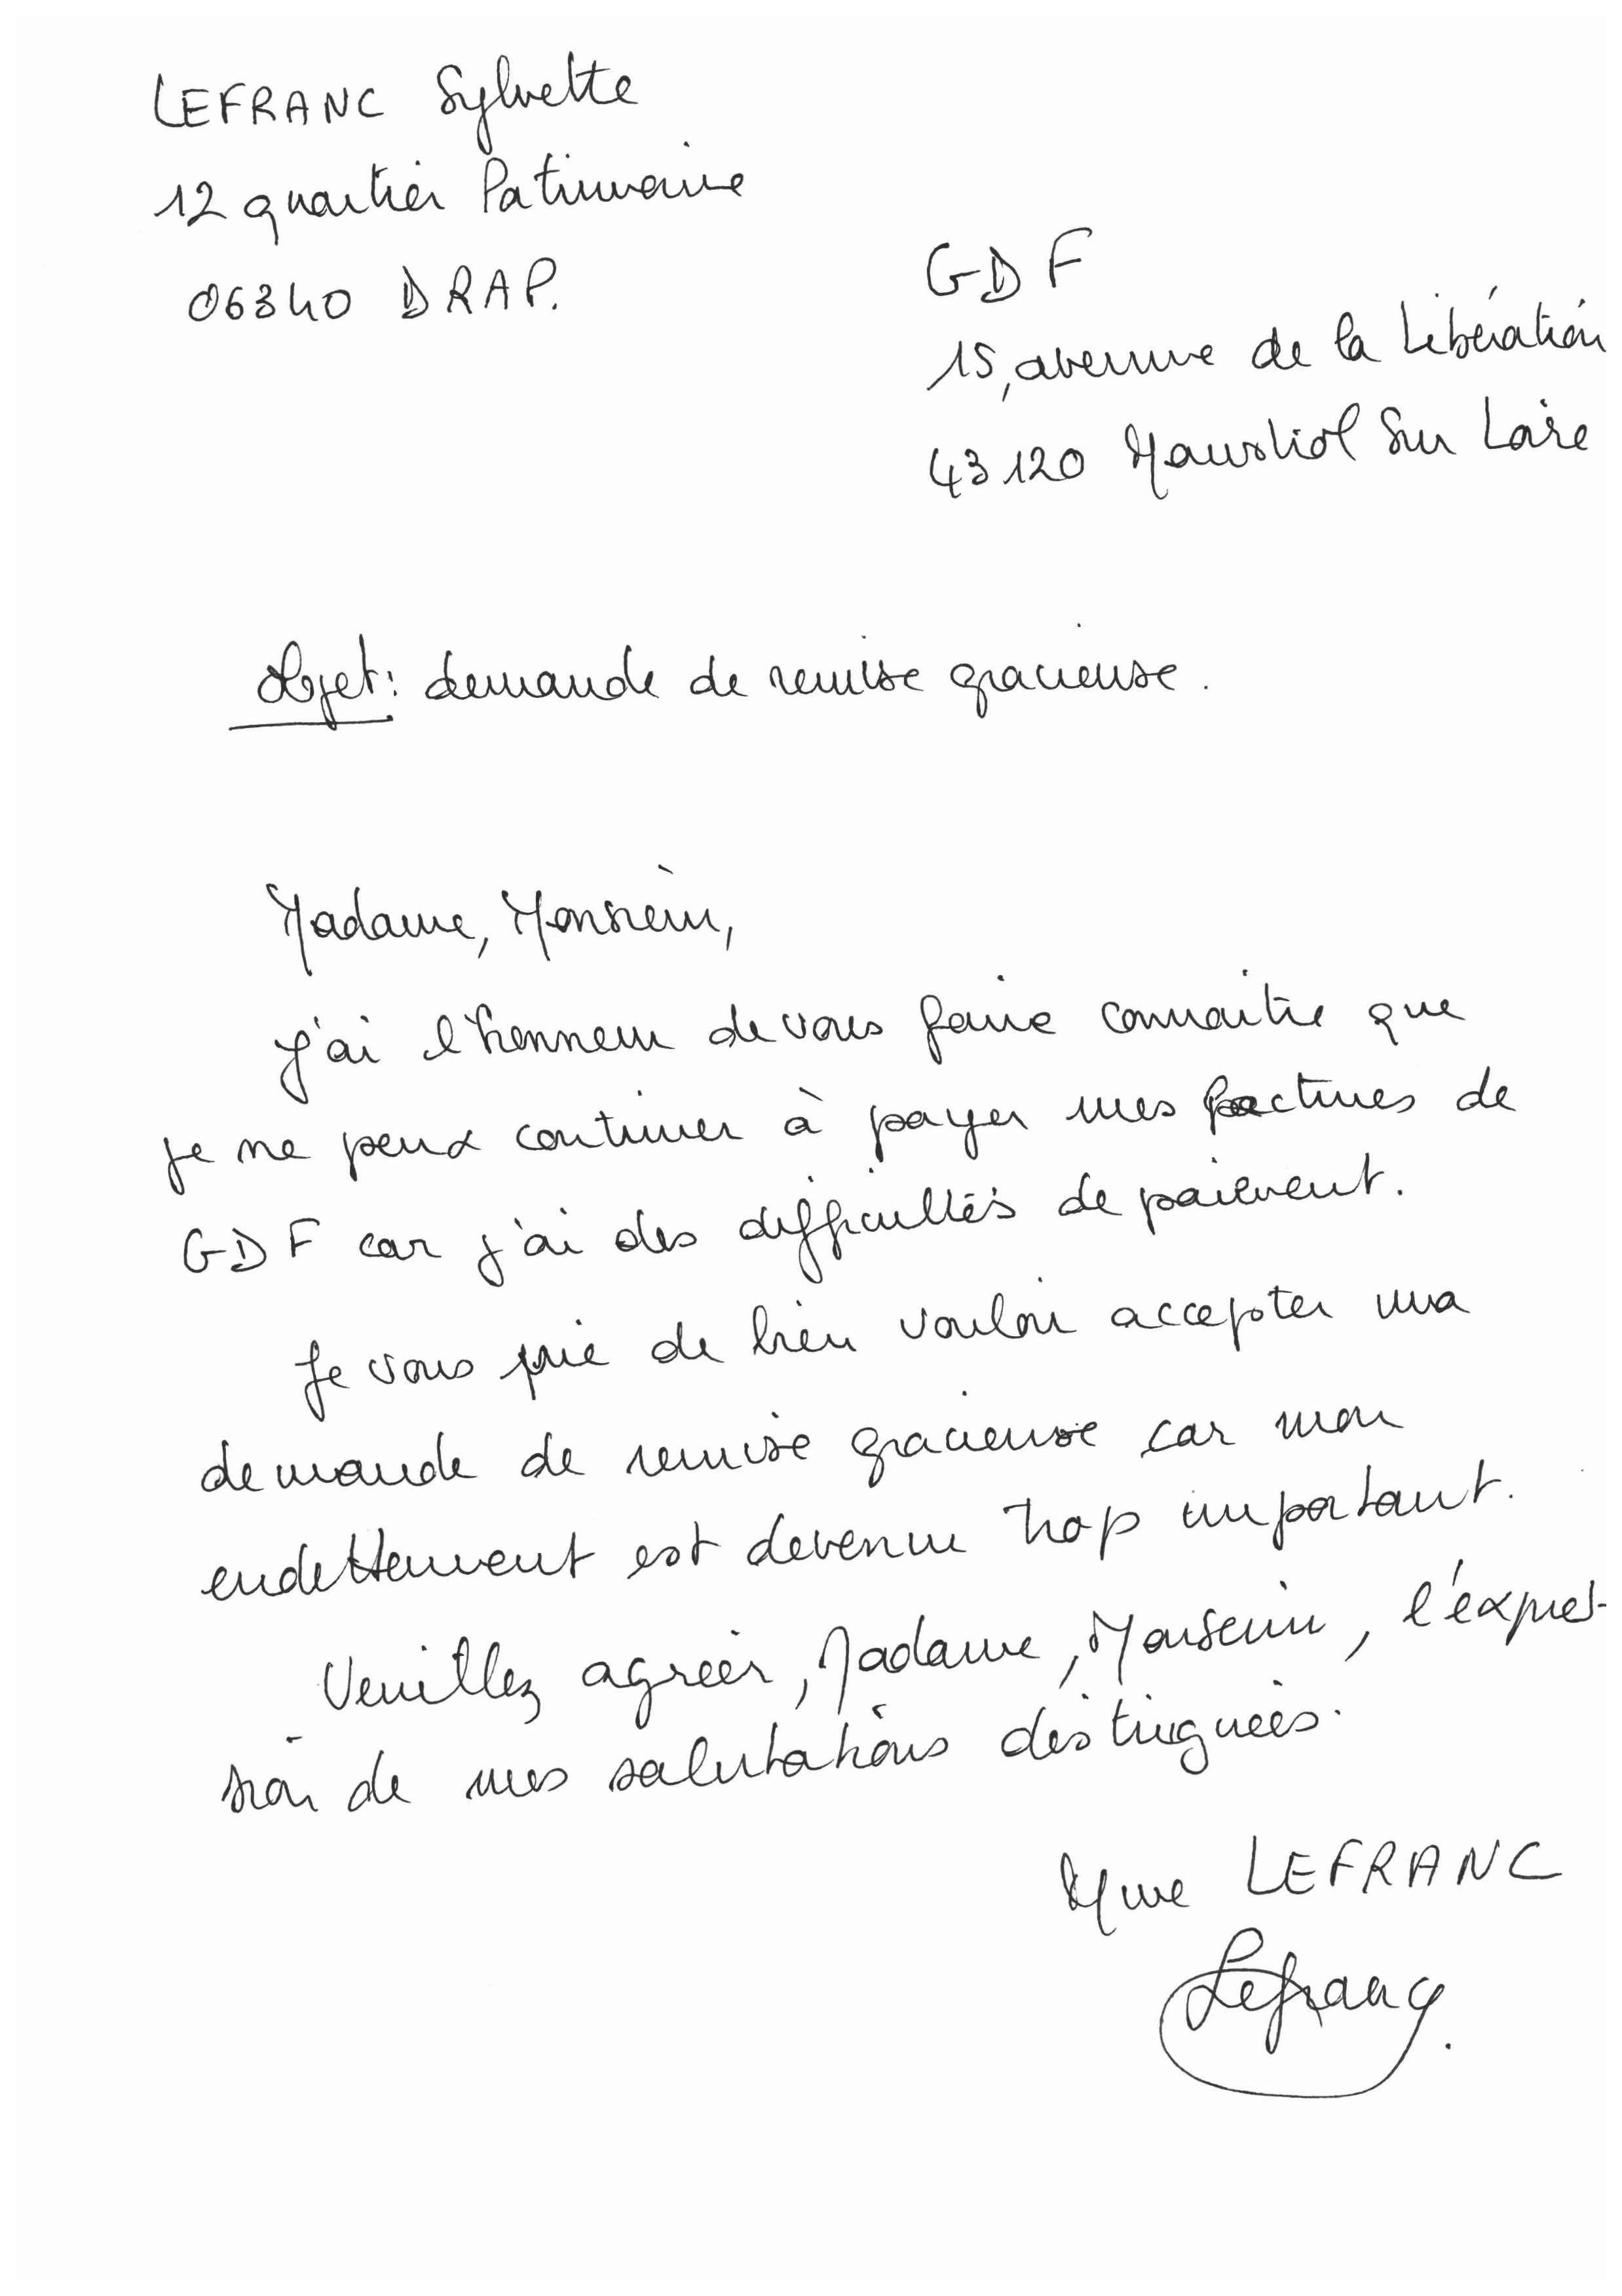 LEFRANC Sylvette
12 quartier Patrimoine
06340 DRAP.
GDF
15, avenue de la Libération
43120 Monistrol Sur Loire
Objet: demande de remise gracieuse.
Madame, Monsieur,
J'ai l'honneur de vous faire connaitre que
je ne peux continuer à payer mes factures de
GDF car j'ai des difficultés de paiement.
Je vous prie de bien vouloir accepter ma
demande de remise gracieuse car mon
endettement est devenu trop important.
Veuillez agréer, Madame, Monsieur, l'expres-
sion de mes salutations distinguées.
Mme LEFRANC
Lefranc